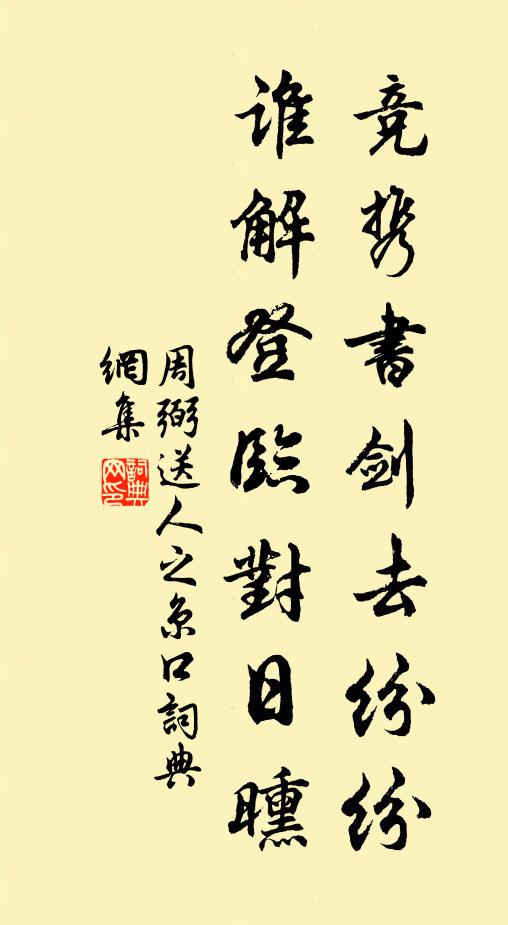 竞携書剑去纷纷
谁解登臨對日曛
周弼送人之京口詞典
網集
詞典
网印